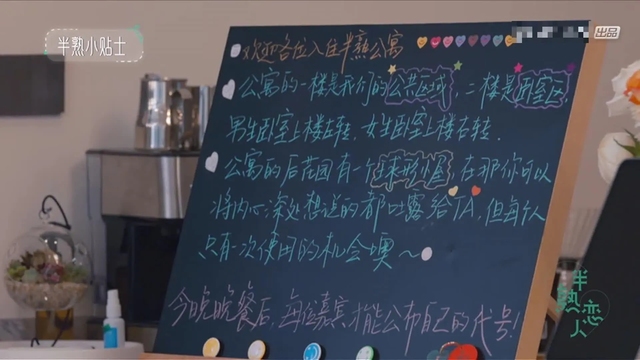 半熟小贴士
出品
欢迎各位入住半熟公寓
公寓的一楼是我们的公共区域,二楼是卧室区,
男生卧室上楼左转,女生卧室上楼右转.
公寓的后花园有一个未来形小屋,在那你可以
将内心深处想说的都吐露给TA,但每个人
只有一次使用的机会噢~
今晚晚餐后,每位嘉宾才能公布自己的代号!
半熟恋人